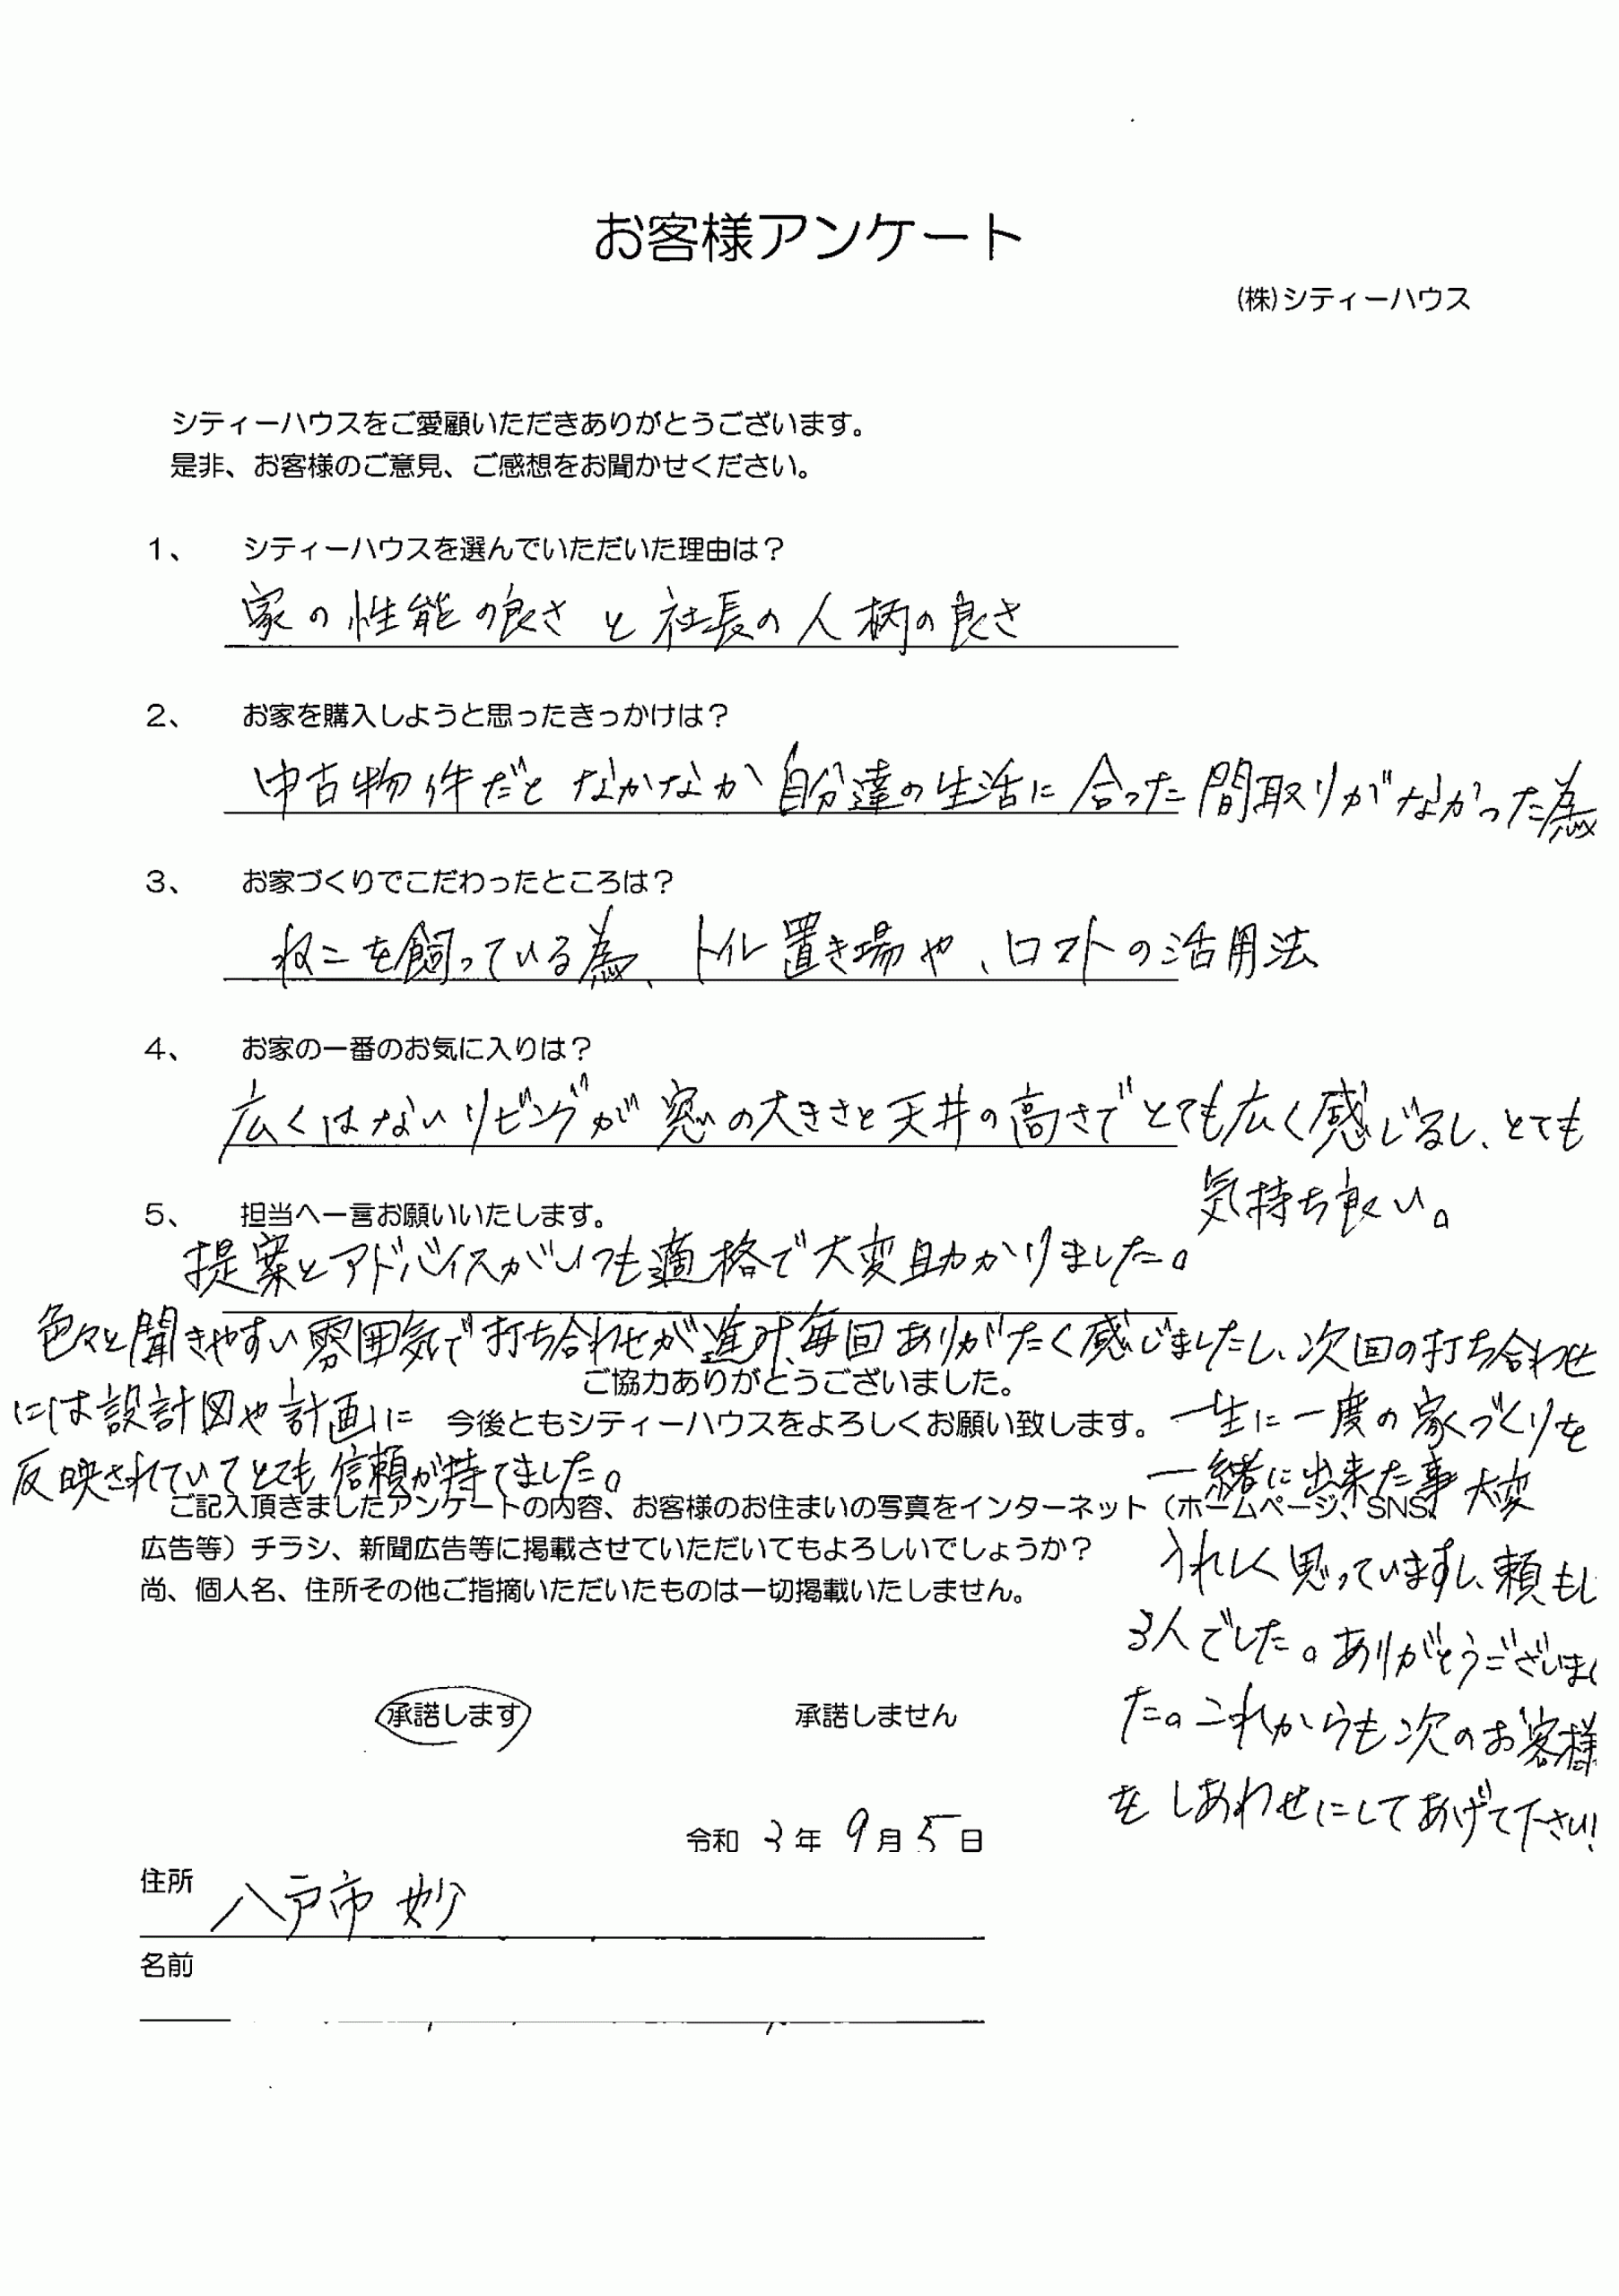 お客様アンケート
(株)シティーハウス
シティーハウスをご愛顧いただきありがとうございます。
是非、お客様のご意見、ご感想をお聞かせください。
1、 シティーハウスを選んでいただいた理由は？
家の性能の良さと社長の人柄の良さ
2、 お家を購入しようと思ったきっかけは？
中古物件だとなかなか自分達の生活に合った間取りがなかった為
3、 お家づくりでこだわったところは？
ねこを飼っている為、トイレ置き場や、ロフトの活用法
4、 お家の一番のお気に入りは？
広くはないリビングが窓の大きさと天井の高さでとても広く感じるし、とても
気持ち良い。
5、 担当へ一言お願いいたします。
提案とアドバイスがいつも適格で大変助かりました。
色々と聞きやすい雰囲気で打ち合わせが進み、毎回ありがたく感じましたし、次回の打ち合わせ
には設計図や計画に
反映されていてとても信頼が持てました。
一生に一度の家づくりを
一緒に出来た事大変
うれしく思っていますし、頼もし
る人でした。ありがとうございまし
た。これからも次のお客様
をしあわせにしてあげて下さい!
ご協力ありがとうございました。
今後ともシティーハウスをよろしくお願い致します。
ご記入頂きましたアンケートの内容、お客様のお住まいの写真をインターネット（ホームページ、SNS、
広告等）チラシ、新聞広告等に掲載させていただいてもよろしいでしょうか？
尚、個人名、住所その他ご指摘いただいたものは一切掲載いたしません。
承諾します 承諾しません
令和 3 年 9 月 5 日
住所 八戸市 妙
名前